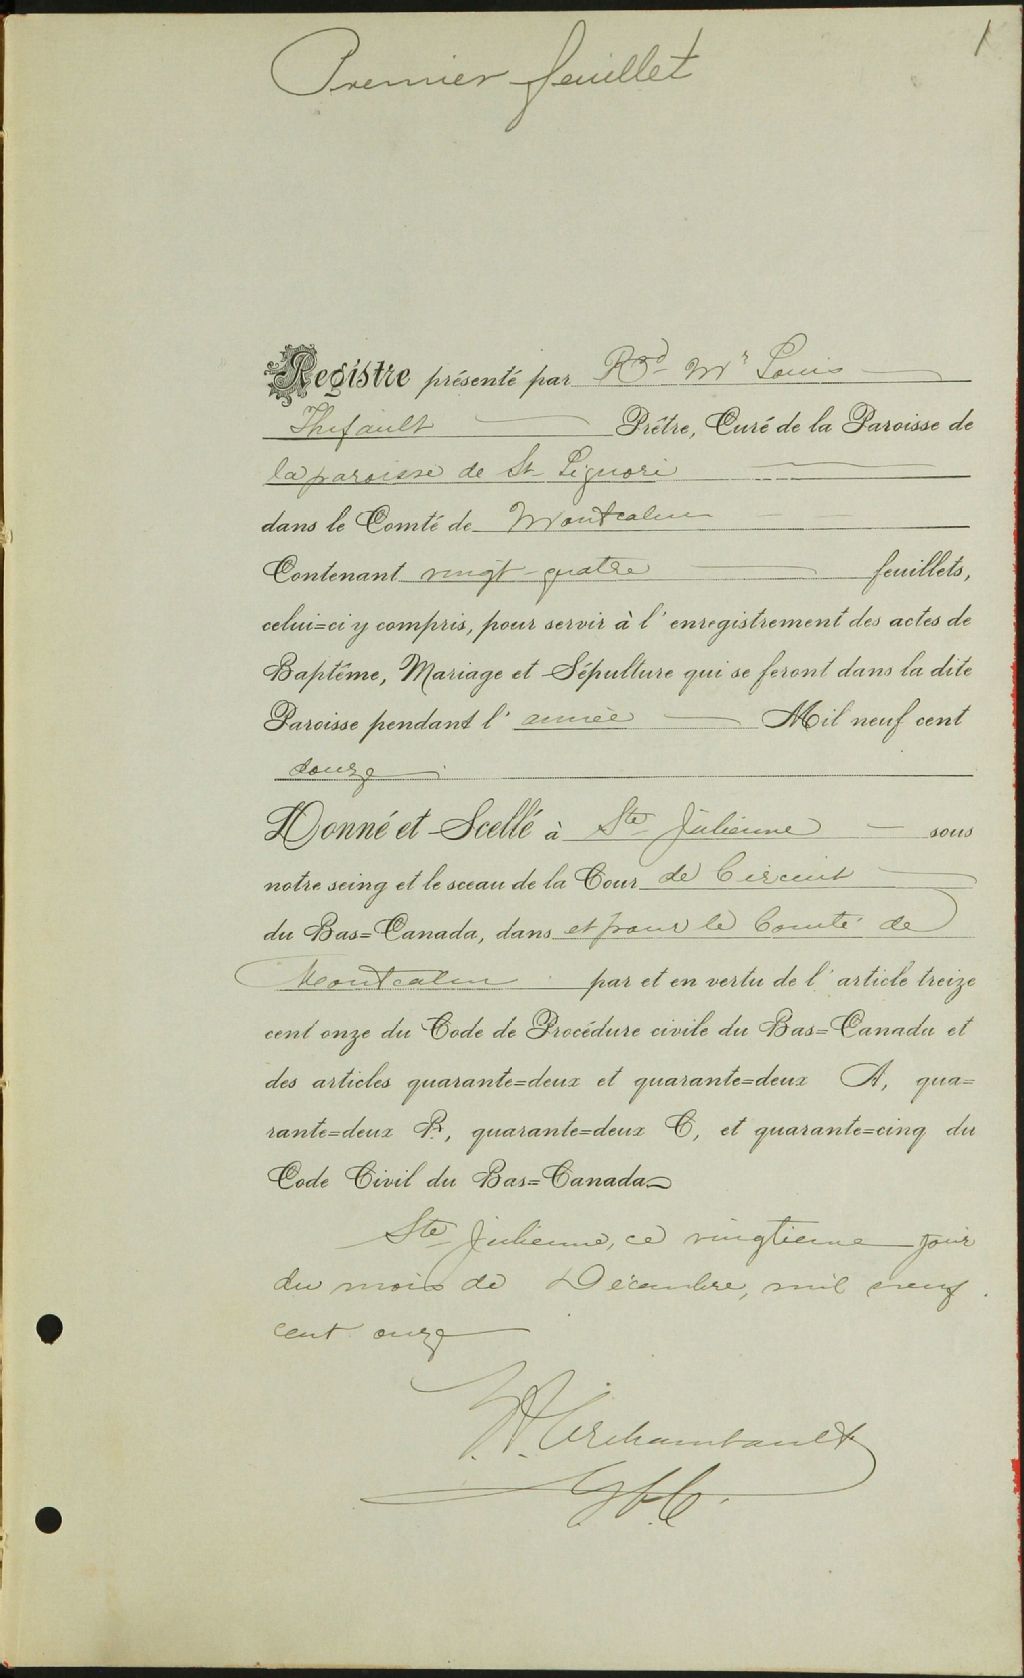 1
Premier feuillet
Registre présenté par Rvd Mr Louis
Thifault Prêtre, Curé de la Paroisse de
la paroisse de St Liguori
dans le Comté de Montcalm
Contenant vingt-quatre feuillets,
celui=ci y compris, pour servir à l'enregistrement des actes de
Baptême, Mariage et Sépulture qui se feront dans la dite
Paroisse pendant l'année Mil neuf cent
douze
Donné et Scellé à Ste Julienne sous
notre seing et le sceau de la Cour de Circuit
du Bas=Canada, dans et pour le Comté de
Montcalm par et en vertu de l'article treize
cent onze du Code de Procédure civile du Bas=Canada et
des articles quarante=deux et quarante=deux A, qua=
rante=deux B, quarante=deux C, et quarante=cinq du
Code Civil du Bas=Canada
Ste Julienne, ce vingtieme jour
du mois de Décembre, mil neuf
cent onze
Archambault